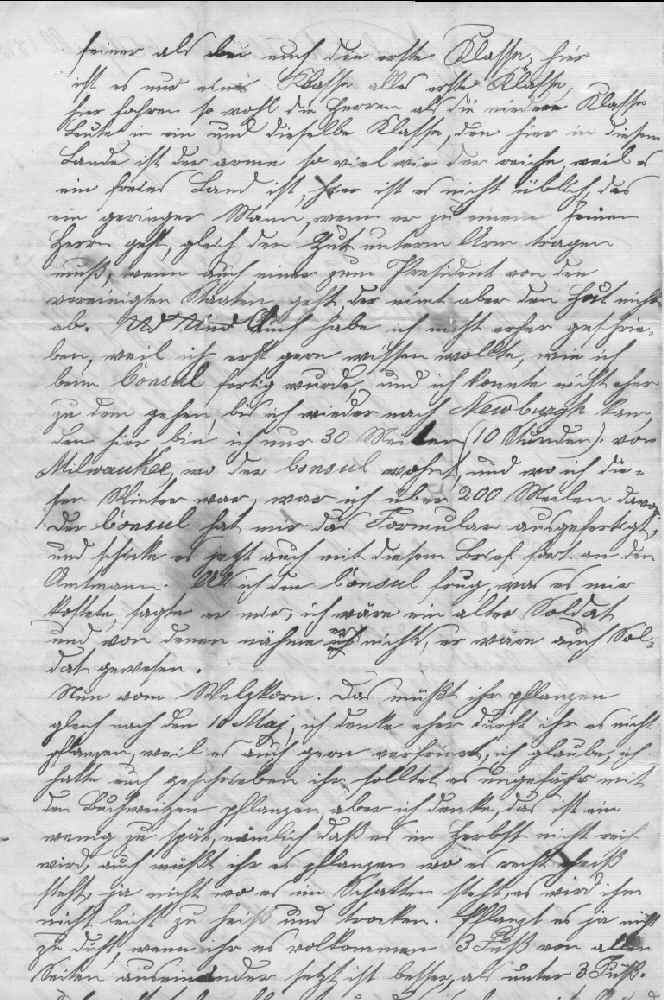 feiner als bei euch die erste Klasse, hier
ist es nur eine Klasse alles erste Klasse,
hier fahren so wohl die Herren als die niedere Klasse
Leute in ein und dieselbe Klasse, den hier in diesem
Lande ist der arme so viel wie der reiche, weil es
ein freies Land ist, hier ist es nicht üblich, das
ein geringer Mann, wenn er zu einem feinen
Herrn geht, gleich den Hut unterm Arm tragen
muß, wenn auch einer zum President von den
vereinigten Staaten geht, der nimt aber den Hut nicht
ab. Auch habe ich nicht eher geschrie-
ben, weil ich erst gern wissen wollte, wie ich
beim Consul fertig wurde, und ich konnte nicht eher
zu dem gehen, bis ich wieder nach Newburgh kam,
den hier bin ich nur 30 Meilen (10 Stunden) von
Milwaukee, wo der Consul wohnt, und wo ich die-
sen Winter war, war ich über 200 Meilen davon
Der Consul hat mir das Formular ausgefertigt,
und schicke es jetzt auch mit diesem Brief fort an den
Amtmann. Als ich den Consul frug, was es mir
kostete, sagte er mir, ich wäre ein alter Soldat,
und von denen nähme er nichts, er wäre auch Sol-
dat gewesen.
Nun vom Welzkorn. Das müßt ihr pflanzen
gleich nach den 10 Maj, ich denke eher dürft ihr es nicht
pflanzen, weil es auch gern verfriert, ich glaube, ich
hatte euch geschrieben ihr solltet es ungefähr mit
den Buchweitzen pflanzen, aber ich denke, das ist ein
wenig zu spät, nämlich daß es im Herbst nicht reif
wird, auch müßt ihr es pflanzen wo es recht heiß
steht, ja nicht wo es im Schatten steht, es wird ihm
nicht leicht zu heiß und trocken. Pflanzt es ja nicht
zu dicht, wenn ihr es vollkommen 3 Fuß von allen
Seiten auseinander setzt ist besser, als unter 3 Fuß.